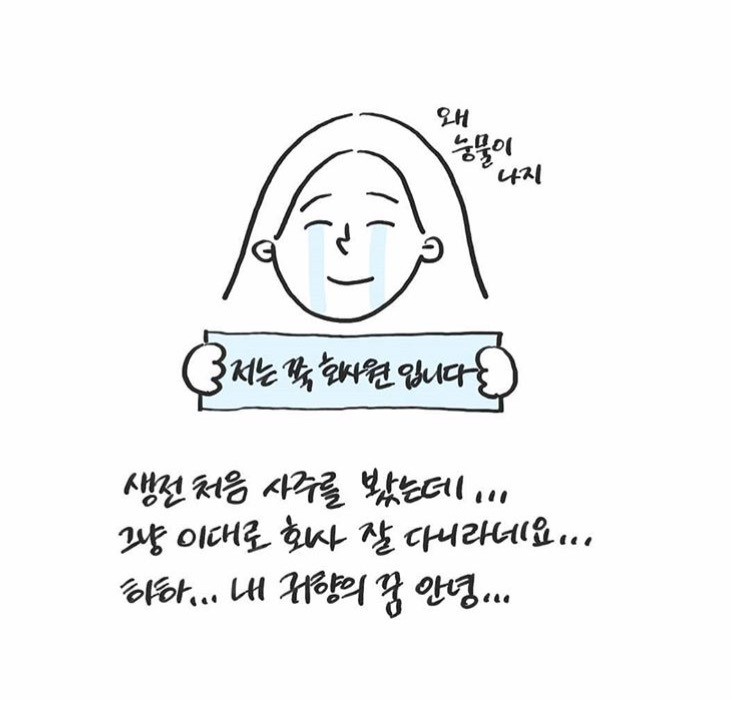 왜
눙물이
나지
저는 쭉 회사원 입니다
생전 처음 사주를 봤는데...
그냥 이대로 회사 잘 다니라네요...
하하... 내 귀향의 꿈 안녕...